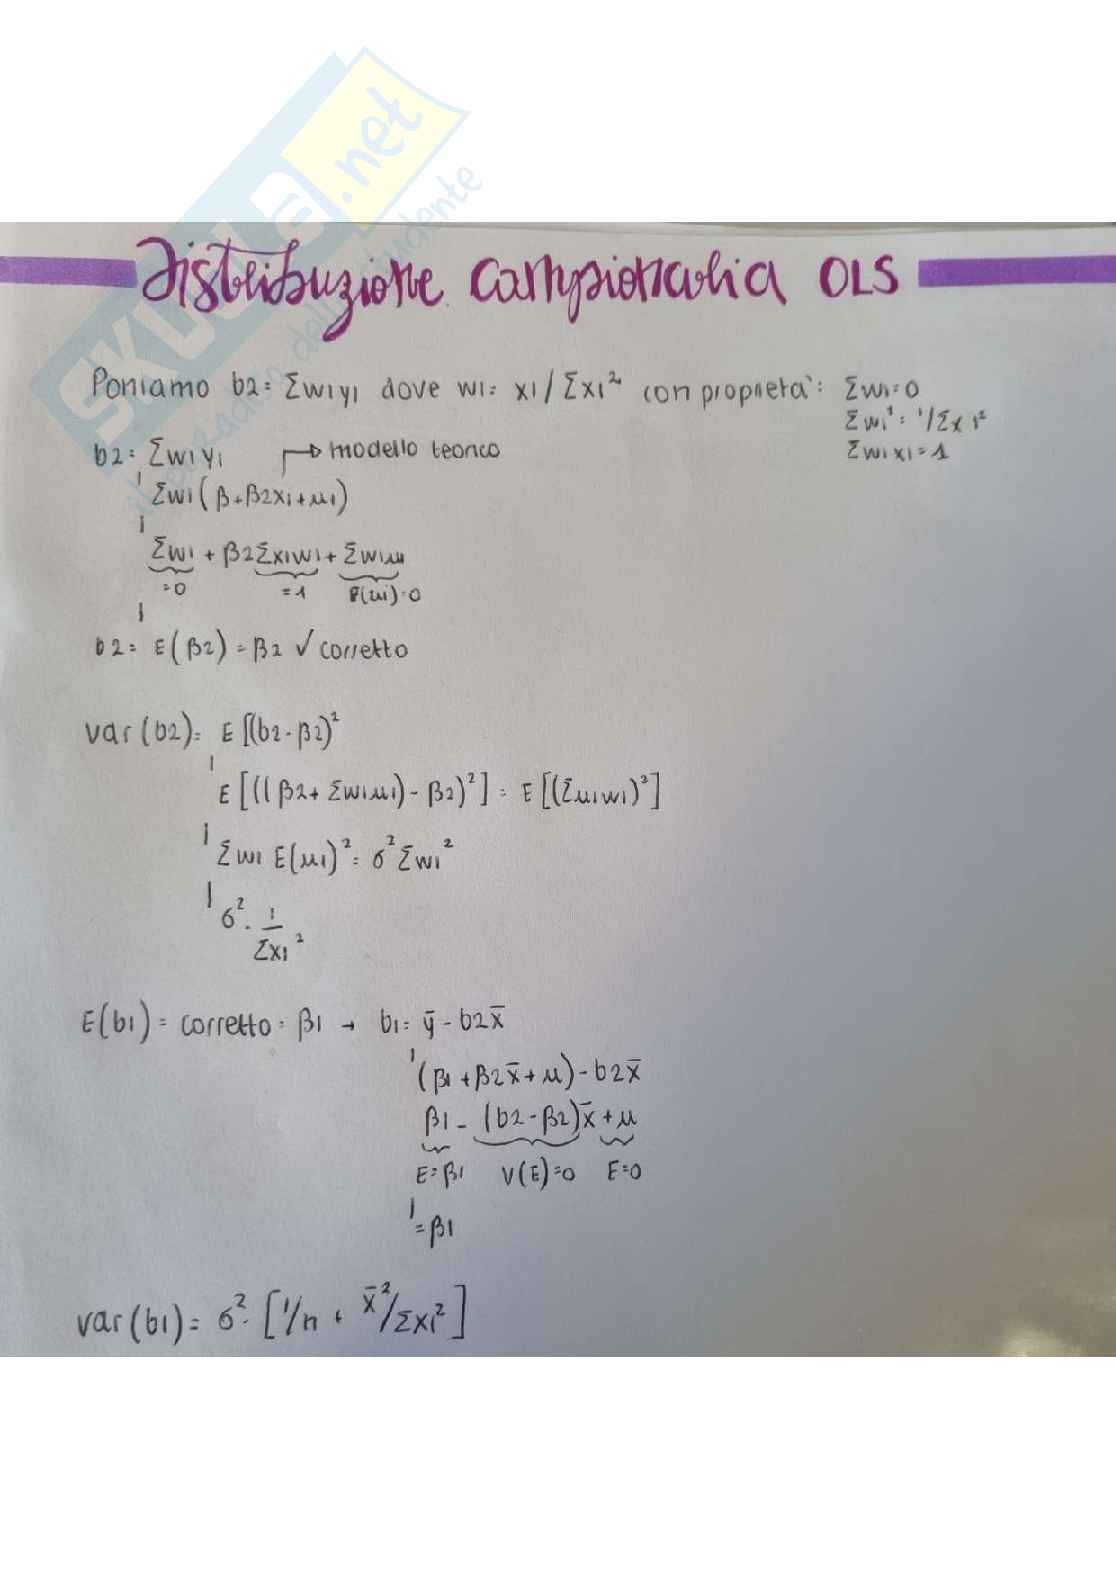 SKUOLA.net
il lato dello studente
Distribuzione campionaria OLS
Poniamo b2= Σwiyi dove wi= xi/Σxi² con proprietà: Σwi=0
Σwi²= 1/Σxi²
Σwixi=1
b2= Σwiyi → modello teorico
Σwi(β+β2xi+μi)
Σwi + β2Σxiwi + Σwiμi
=0 =1 E(ui)=0
b2= E(β2)=β2 √ corretto
var(b2)= E[(b2-β2)²
E[((β2+Σwiμi)-β2)²] = E[(Σμiwi)²]
Σwi E(μi)²= σ²Σwi²
σ². 1
Σxi²
E(b1)= corretto= β1 → b1= ȳ - b2x̄
(β1+β2x̄+μ)-b2x̄
β1- (b2-β2)x̄+μ
E=β1 V(E)=0 E=0
=β1
var(b1)= σ². [1/n + x̄²/Σxi²]